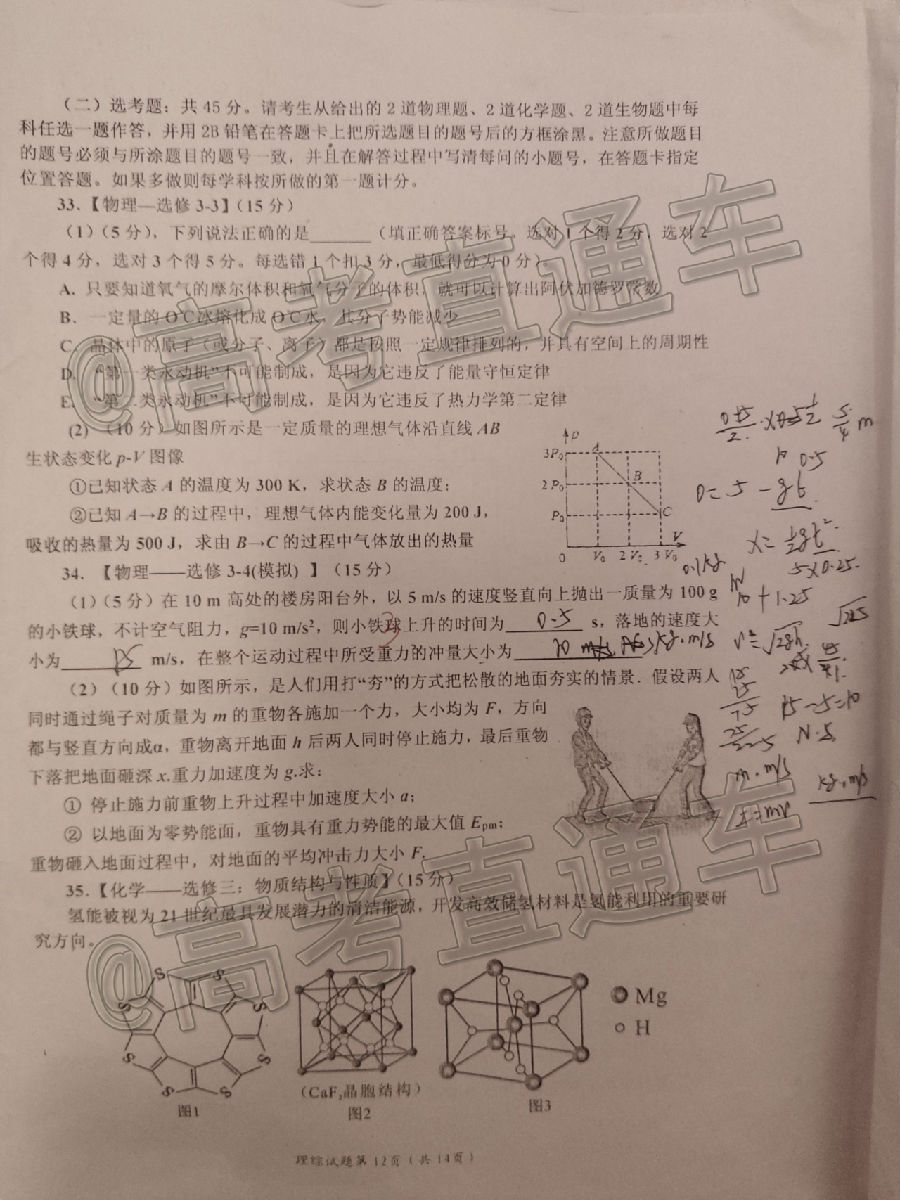 （二）选考题：共 45 分。请考生从给出的 2 道物理题、2 道化学题、2 道生物题中每
科任选一题作答，并用 2B 铅笔在答题卡上把所选题目的题号后的方框涂黑。注意所做题目
的题号必须与所涂题目的题号一致，并且在解答过程中写清每问的小题号，在答题卡指定
位置答题。如果多做则每学科按所做的第一题计分。
33.【物理—选修 3-3】（15 分）
（1）（5 分），下列说法正确的是______（填正确答案标号。选对 1 个得 2 分，选对 2
个得 4 分，选对 3 个得 5 分。每选错 1 个扣 3 分，最低得分为 0 分）
A. 只要知道氧气的摩尔体积和氧气分子的体积，就可以计算出阿伏加德罗常数
B. 一定量的 0℃冰熔化成 0℃水，其分子势能减少
C. 晶体中的原子（或分子、离子）都是按照一定规律排列的，并具有空间上的周期性
D. “第一类永动机”不可能制成，是因为它违反了能量守恒定律
E. “第二类永动机”不可能制成，是因为它违反了热力学第二定律
(2) （10 分）如图所示是一定质量的理想气体沿直线 AB
生状态变化 p-V 图像
①已知状态 A 的温度为 300 K，求状态 B 的温度；
②已知 A→B 的过程中，理想气体内能变化量为 200 J，
吸收的热量为 500 J，求由 B→C 的过程中气体放出的热量
p
3P₀
2P₀
P₀
A
B
C
0 V₀ 2V₀ 3V₀ V
34. 【物理——选修 3-4(模拟) 】（15 分）
(1)（5 分）在 10 m 高处的楼房阳台外，以 5 m/s 的速度竖直向上抛出一质量为 100 g
的小铁球，不计空气阻力，g=10 m/s²，则小铁球上升的时间为 0.5 s，落地的速度大
小为 15 m/s，在整个运动过程中所受重力的冲量大小为
(2)（10 分）如图所示，是人们用打“夯”的方式把松散的地面夯实的情景．假设两人
同时通过绳子对质量为 m 的重物各施加一个力，大小均为 F，方向
都与竖直方向成α，重物离开地面 h 后两人同时停止施力，最后重物
下落把地面砸深 x.重力加速度为 g.求：
① 停止施力前重物上升过程中加速度大小 a；
② 以地面为零势能面，重物具有重力势能的最大值 Epm；
重物砸入地面过程中，对地面的平均冲击力大小 F.
0=5-gt
10+1.25
15-5=10
N·S
kg·m/s
35.【化学——选修三：物质结构与性质】（15 分）
氢能被视为 21 世纪最具发展潜力的清洁能源，开发高效储氢材料是氢能利用的重要研
究方向。
S S S S S S S
Mg
H
（CaF₂晶胞结构）
图1
图2
图3
理综试题第 12页（共 14页）
@高考直通车
@高考直通车